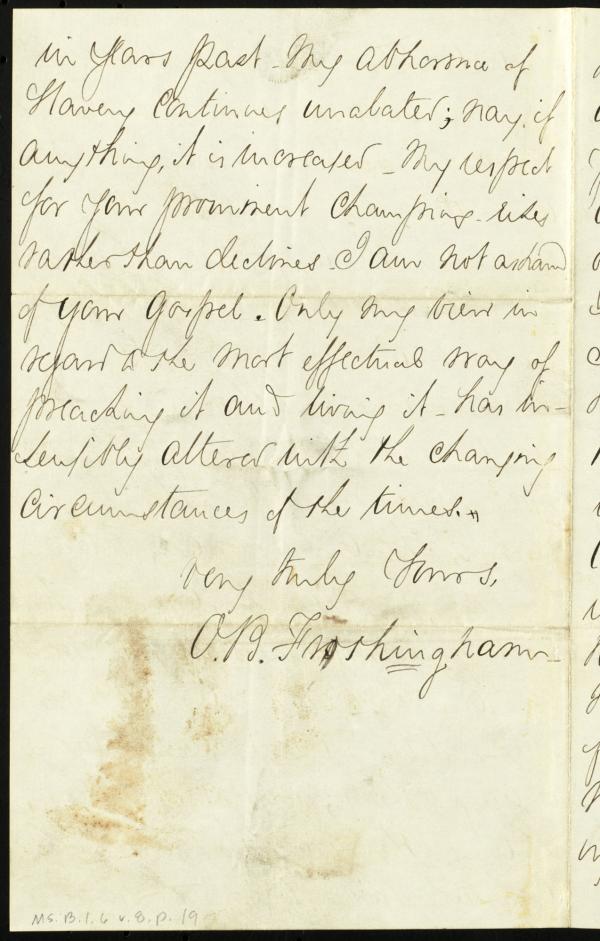 in years past - My abhorrence of
Slavery continues unabated; nay, if
anything, it is increased - My respect
for your prominent champions rises
rather than declines - I am not asham'd
of your Gospel. Only my view in
regard to the most effectual way of
preaching it and living it - has in-
sensibly altered with the changing
circumstances of the times. "
very truly Yours,
O. B. Frothingham -
Ms. B. 1. 6 v. 8. p. 19